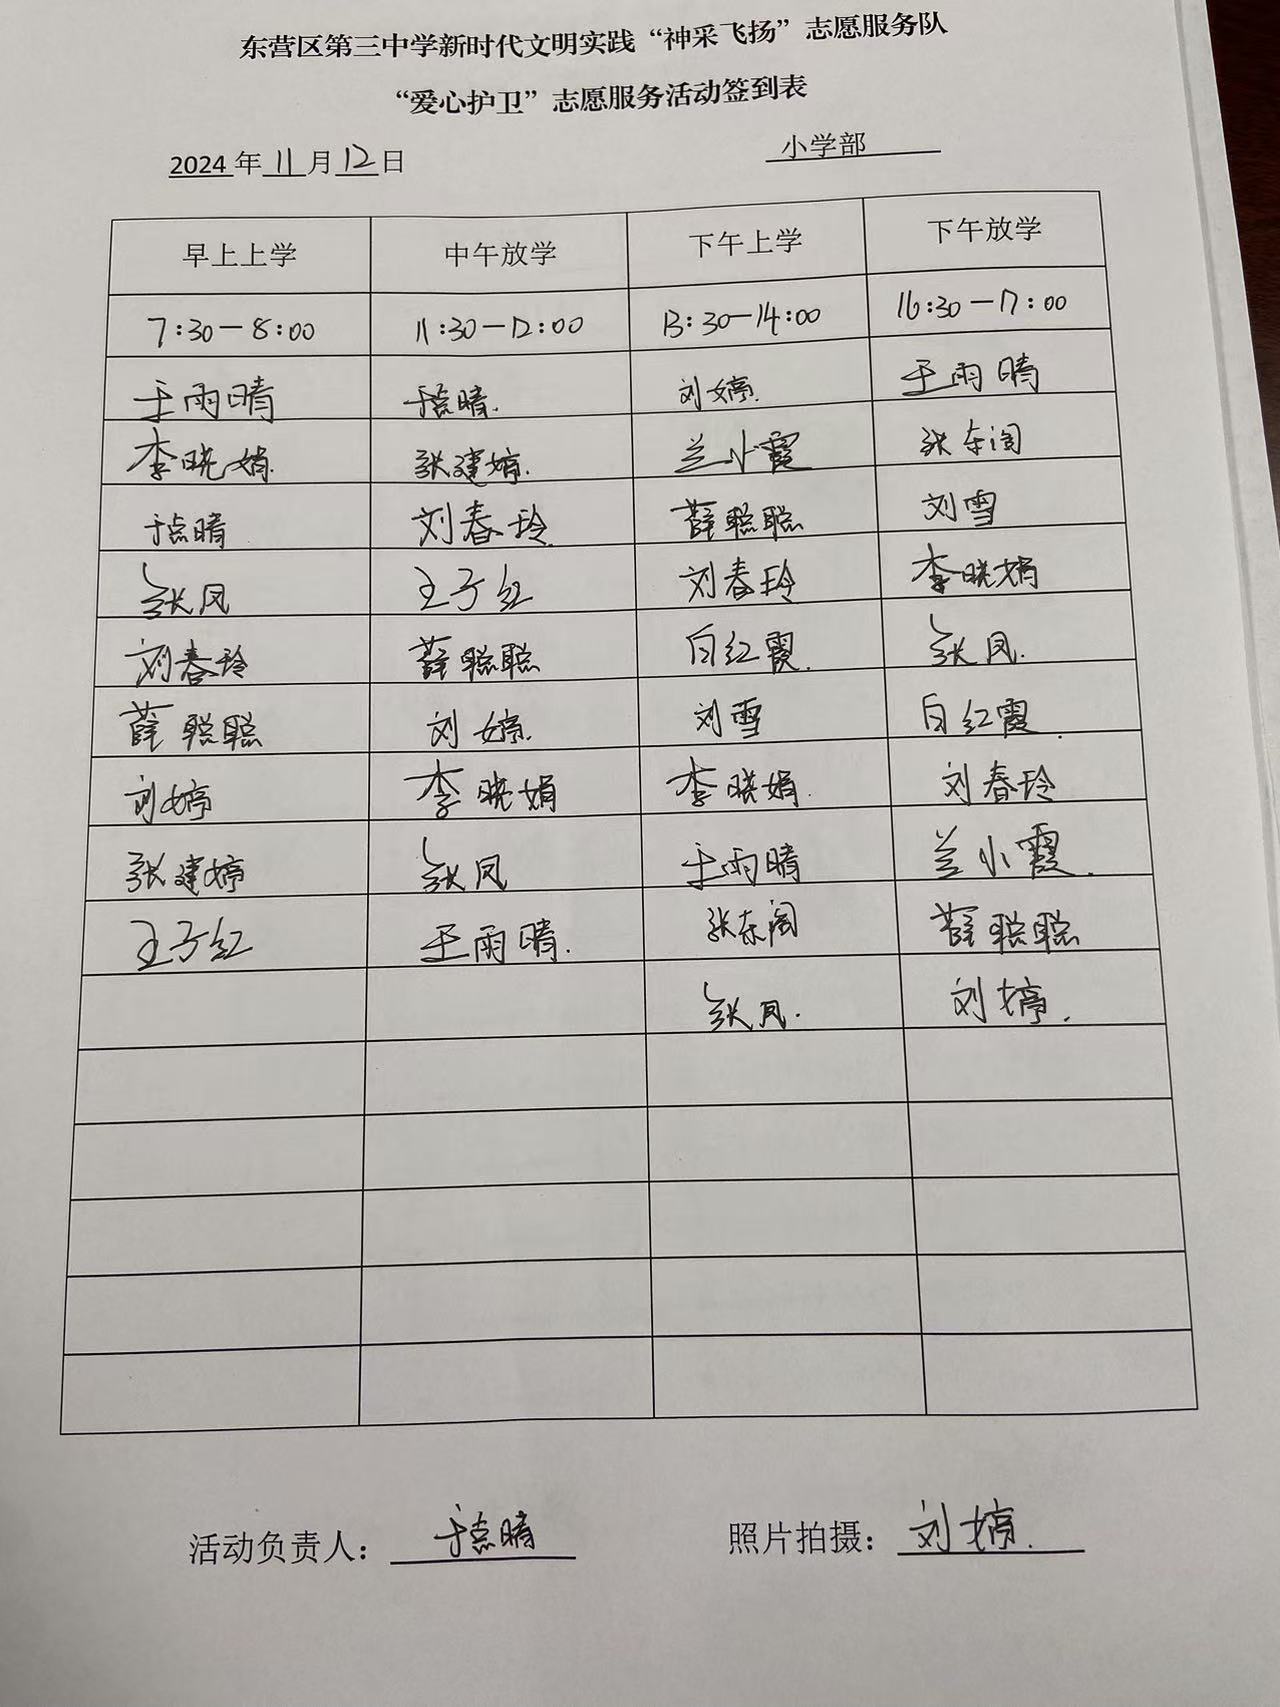 东营区第三中学新时代文明实践“神采飞扬”志愿服务队
“爱心护卫”志愿服务活动签到表
2024年11月12日 小学部
早上上学 中午放学 下午上学 下午放学
7:30—8:00 11:30—12:00 13:30—14:00 16:30—17:00
于雨晴 于点晴. 刘婷. 于雨晴
李晓娟 张建婷. 兰小霞 张东阁
于点晴 刘春玲 薛聪聪 刘雪
张凤 王子红 刘春玲 李晓娟
刘春玲 薛聪聪 白红霞. 张凤.
薛聪聪 刘婷. 刘雪 白红霞.
刘婷 李晓娟 李晓娟. 刘春玲
张建婷 张凤 于雨晴 兰小霞.
王子红 于雨晴. 张东阁 薛聪聪
张凤. 刘婷.
活动负责人：于点晴 照片拍摄：刘婷.